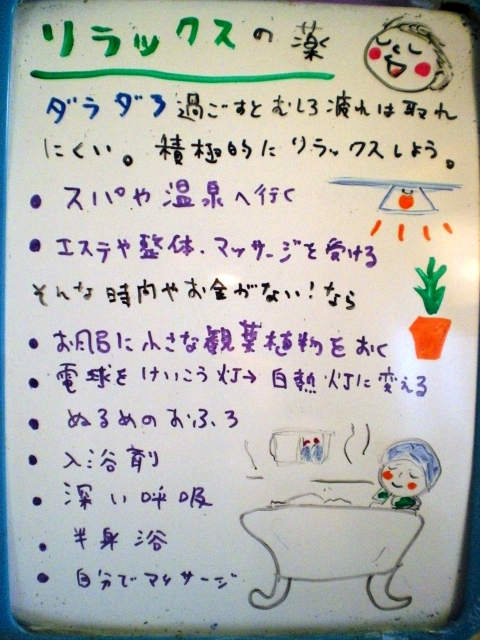 リラックスの薬
ダラダラ過ごすとむしろ疲れは取れ
にくい。積極的にリラックスしよう。
• スパや温泉へ行く
• エステや整体・マッサージを受ける
そんな時間やお金がない!なら
• お風呂に小さな観葉植物をおく
• 電球をけいこう灯→白熱灯に変える
• ぬるめのおふろ
• 入浴剤
• 深い呼吸
• 半身浴
• 自分でマッサージ